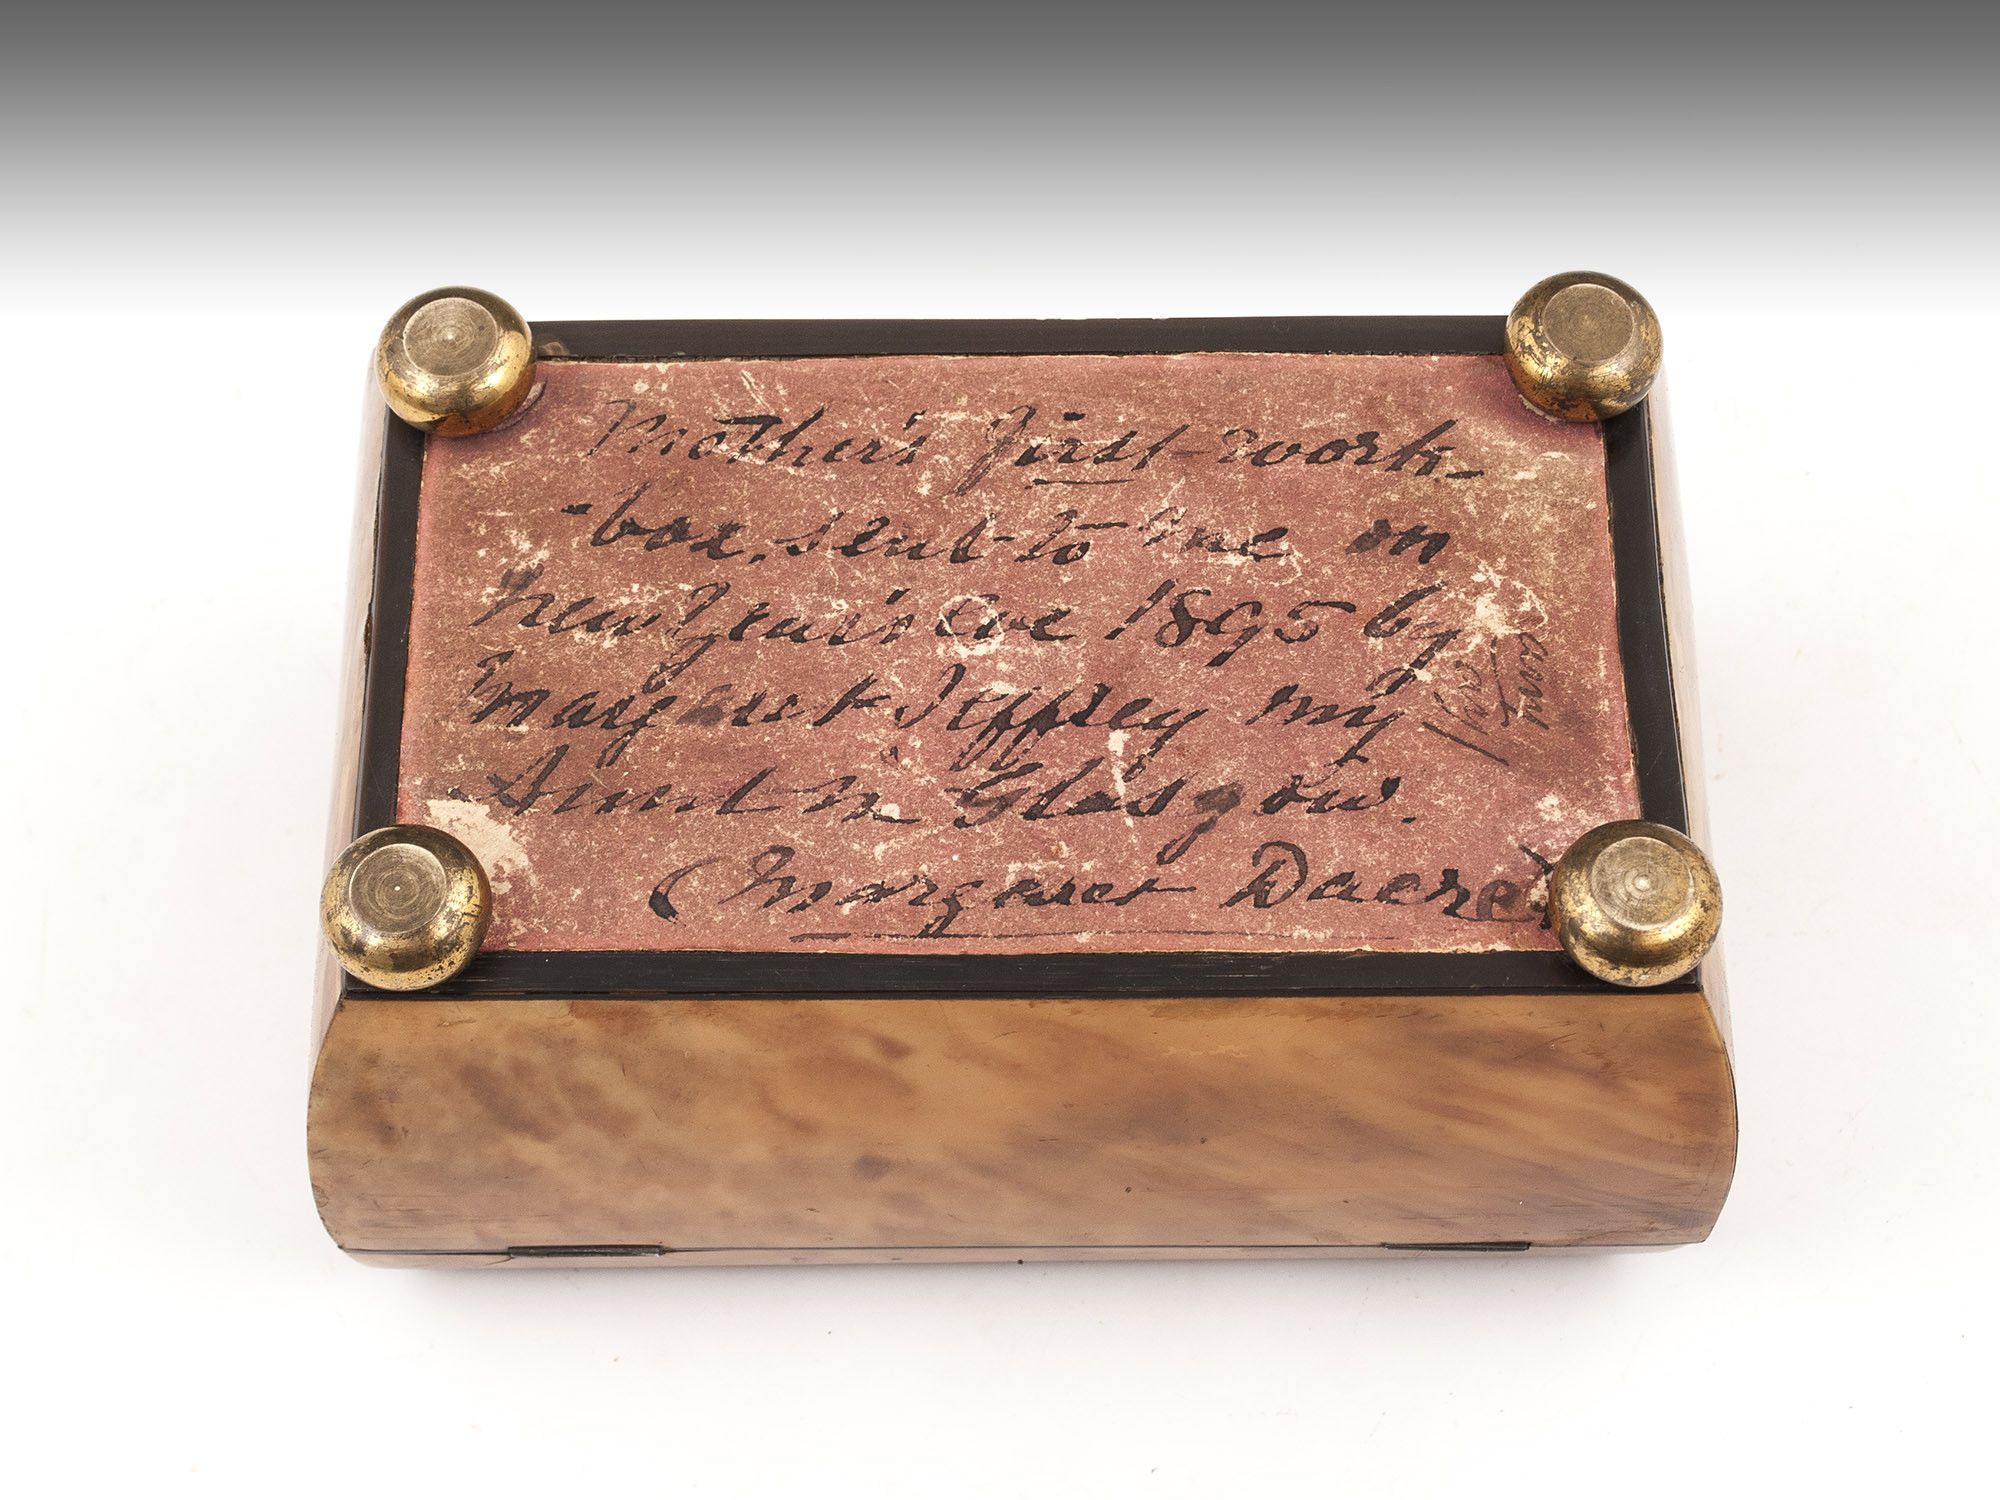 Mother's first work-
-box, sent to me on
New Year's Eve 1895 by
Margaret Jeffrey my
Aunt in Glasgow.
(Margaret Dacre)